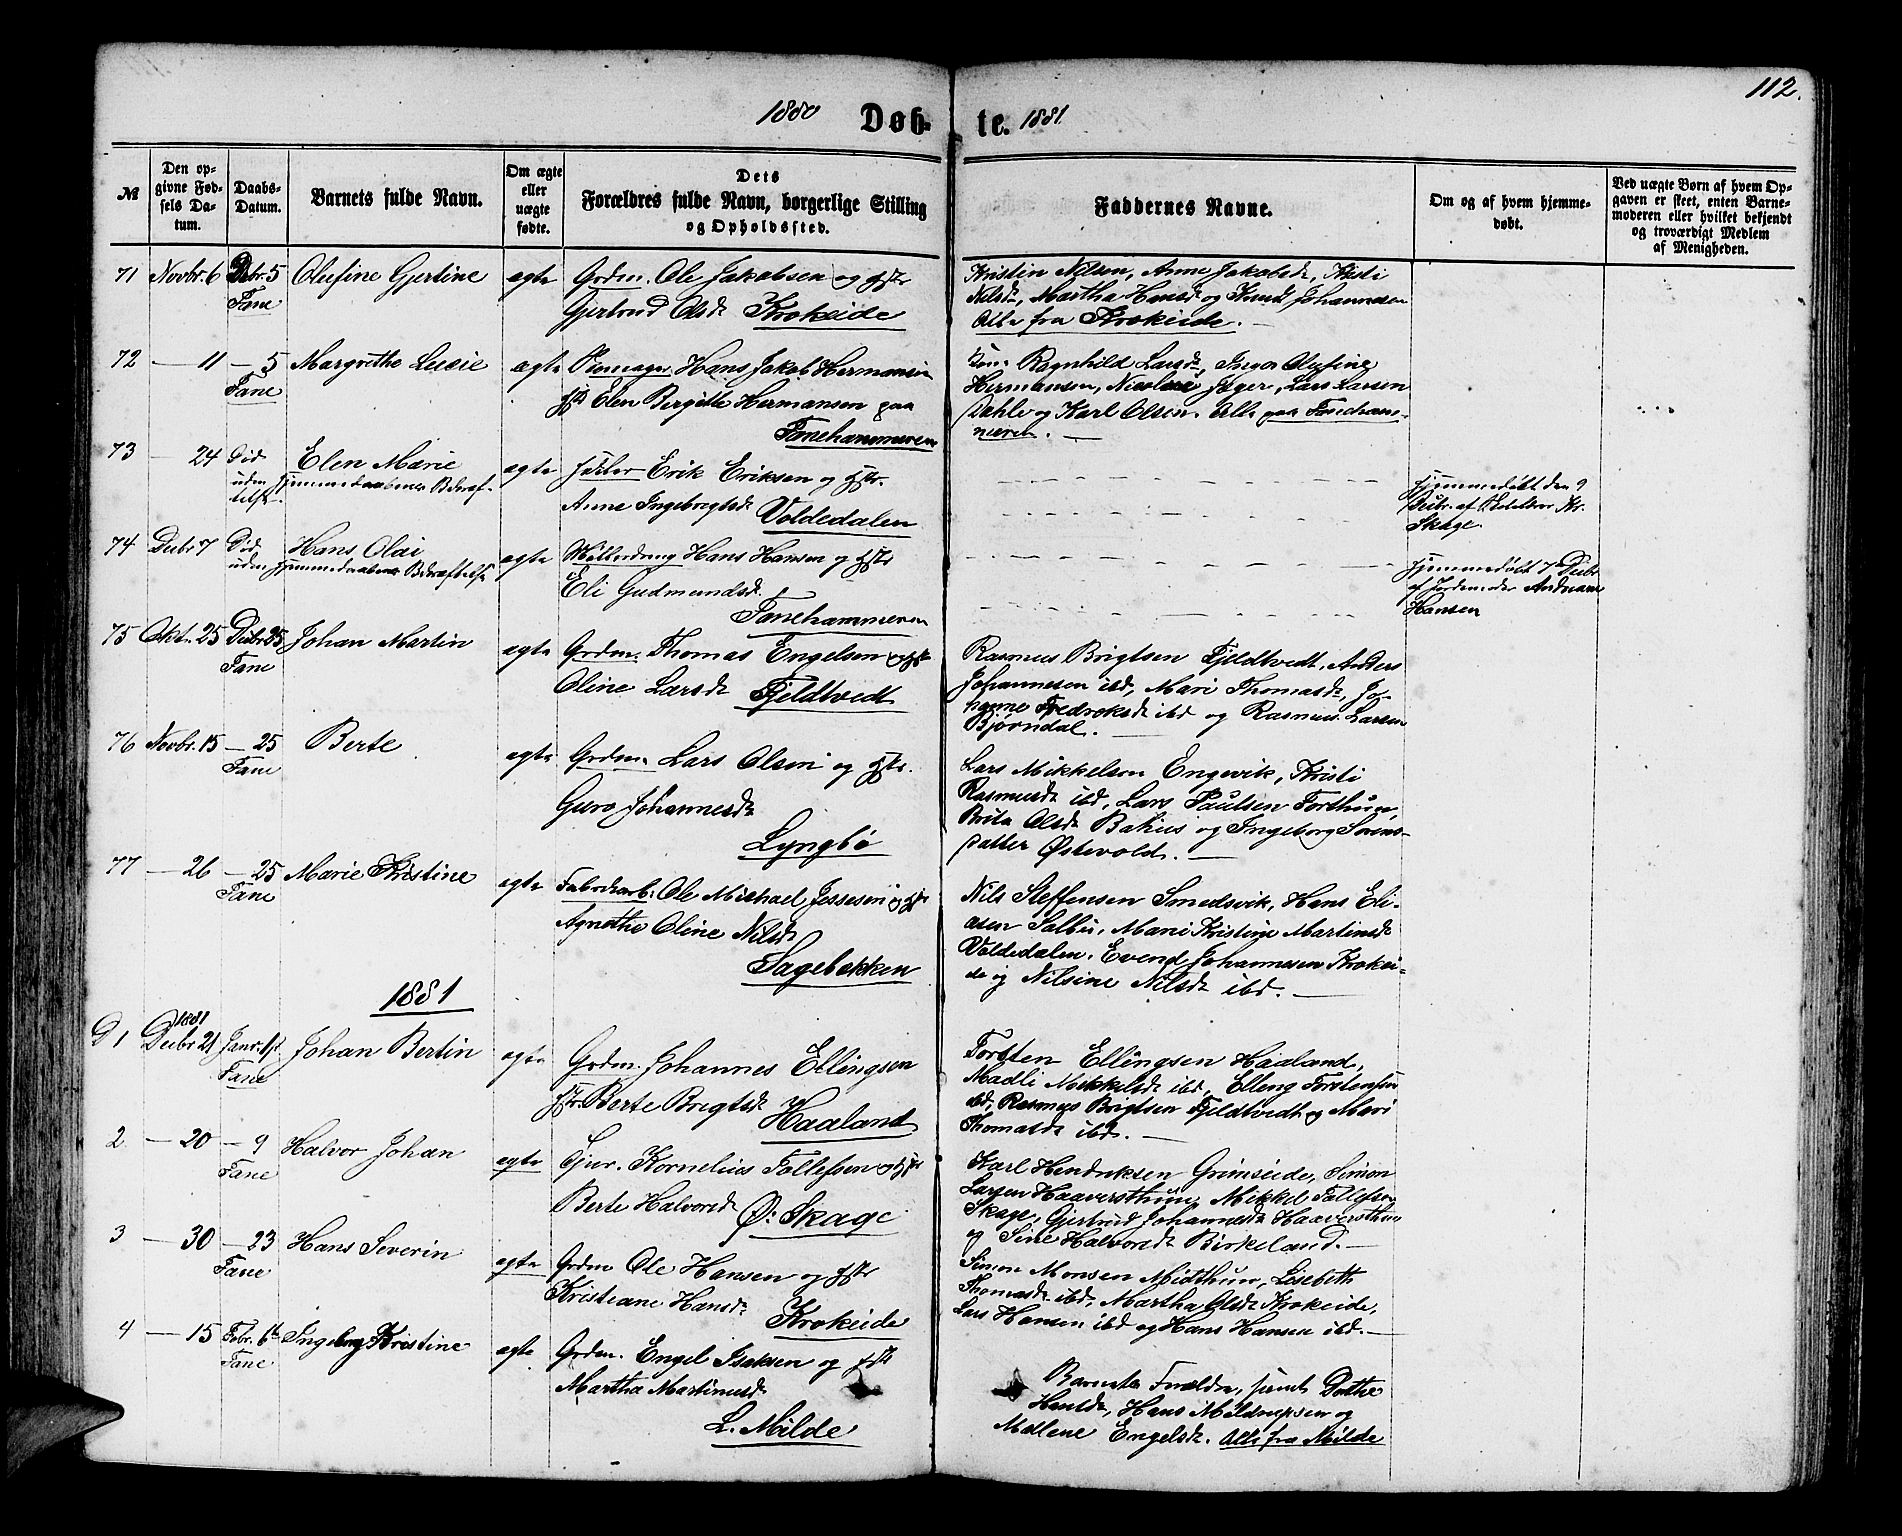 112.
1880 Døb- te. 1881
№
Den op-
givne Fød-
sels Da-
tum.
Daabs-
Datum.
Barnets fulde Navn.
Om ægte
eller
uægte
fødte.
Dets
Forældres fulde Navn, borgerlige Stilling
og Opholdssted.
Faddernes Navne.
Om og af hvem hjemme-
døbt.
Ved uægte Børn af hvem Op-
gaven er skeet, enten Barne-
moderen eller hvilket bekjendt
og troværdigt Medlem
af Menigheden.
71 Novbr. 6 Debr. 5 Olufine Gjertine ægte Grdm. Ole Jakobsen og Hstr
Fane Gjertrud Olsd. Krokeide
Kristin Nilsen, Anne Jakobsd., Kristi
Nilsd., Martha Hansd. og Knud Johannesen
Alle fra Krokeide.
72 — 11 — 5 Margrethe Lucie ægte Hans Jakob Hermansen
Fane Hstr Elen Bergitte Hermansen paa
Fanehammeren
Ragnhild Larsd., Inga Olufine
Hermansen, Nicolai Jæger, Lars Larsen
Dahle og Karl Olsen. Alle paa Faneham-
meren.
73 — 24 Død Elen Marie ægte Erik Eriksen og Hstr.
uden Hjemmedaabens Bekræf-
telse Anne Ingebrigtsd. Voldedalen
Hjemmedøbt den 9
Debr. af Kr.
Skage.
74 Debr 7 Død Hans Olai ægte Møllerdreng Hans Hansen og Hstr
uden Hjemmedaabens Bekræftelse
Eli Gudmundsd.
Fanehammeren
Hjemmedøbt 7de Debr
af Jordemoder
Hansen
75 Oktr. 25 Debr 25 Johan Martin ægte Grdm. Thomas Engelsen og Hstr
Fane Oline Larsd. Fjeldtvedt
Rasmus Brigtsen Fjeldtvedt, Anders
Johannesen ibd, Mari Thomasd., Jo-
hanne Fredriksd. ibd og Rasmus Larsen
Bjørndal.
76 Novbr. 15 — 25 Berte ægte Grdm. Lars Olsen og Hstr.
Fane Guro Johannesd.
Lyngbø
Lars Mikkelsen Engevik, Kristi
Rasmusd. ibd, Lars Paulsen Forthun,
Brita Olsd. og Ingeborg Sørens-
datter Østevold.
77 — 26 — 25 Marie Kristine ægte Fabrikarb. Ole Michael Jessesen og Hstr
Fane Agnethe Oline Nilsd.
Sagebekken
Nils Steffensen Smedsvik, Hans Eli-
asen Salbu, Mari Kristine Martinsd.
Voldedalen, Evend Johannesen Krokei-
de og Nilsine Nilsd. ibd.
1881
1881
D 1 Debr 21 Janr. 1st Johan Bertin ægte Grdm. Johannes Ellingsen
Fane Hstr. Berte Brigtsd.
Haaland
Torsten Ellingsen Haaland,
Madli Mikkelsd. ibd, Elling Torstensen
ibd, Rasmus Brigtsen Fjeldtvedt og Mari
Thomasd. ibd.
2 — 20 — 9 Halvor Johan ægte Kornelius Tollefsen og Hstr
Fane Berte Halvorsd. Ø: Skage
Karl Hendriksen Grimseide, Simon
Larsen Haaversthun, Mikkel Tollefsen
Skage, Gjertrud Johannesd. Haaversthun
og Sine Halvorsd. Birkeland.
3 — 30 — 23 Hans Severin ægte Grdm Ole Hansen og Hstr
Fane Kristiane Hansd.
Krokeide
Simon Monsen Midthun, Lisebeth
Thomasd. ibd, Martha Olsd. Krokeide,
Lars Hansen ibd og Hans Hansen ibd.
4 — 15 Febr. 6te Ingeborg Kristine ægte Grdm. Engel Isaksen og Hstr
Fane Martha Martinusd.
L. Milde
Barnets Forældre, samt Dorthe
Hansd., Hans og
Malene Engelsd. Alle fra Milde